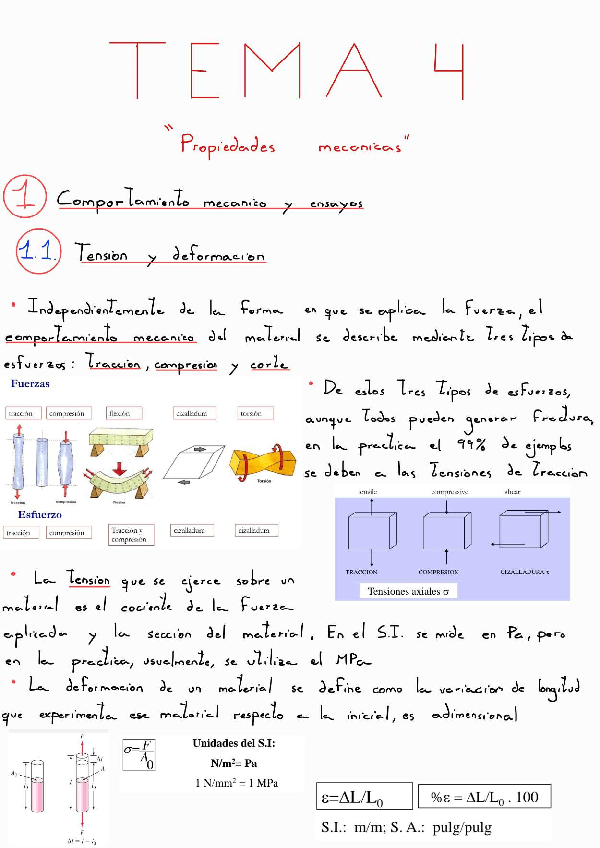 TEMA 4
"Propiedades mecanicas"
1 Comportamiento mecanico y ensayos
1.1. Tension y deformacion
• Independientemente de la forma en que se aplica la fuerza, el
comportamiento mecanico del material se describe mediante tres tipos de
esfuerzos: traccion, compresion y corte
Fuerzas
tracción compresión flexión cizalladura torsión
Torsión
Esfuerzo
tracción compresión Tracción y compresión cizalladura cizalladura
• De estos tres tipos de esfuerzos,
aunque todos pueden generar fractura,
en la practica el 99% de ejemplos
se deben a las tensiones de traccion
tensile compressive shear
TRACCION COMPRESION CIZALLADURA τ
Tensiones axiales σ
• La tension que se ejerce sobre un
material es el cociente de la fuerza
aplicada y la sección del material. En el S.I. se mide en Pa, pero
en la practica, usualmente, se utiliza el MPa
• La deformacion de un material se define como la variacion de longitud
que experimenta ese material respecto a la inicial, es adimensional
σ=F/A₀
Unidades del S.I:
N/m²= Pa
1 N/mm² = 1 MPa
Δl = l − l₀
ε=ΔL/L₀
%ε = ΔL/L₀ . 100
S.I.: m/m; S. A.: pulg/pulg